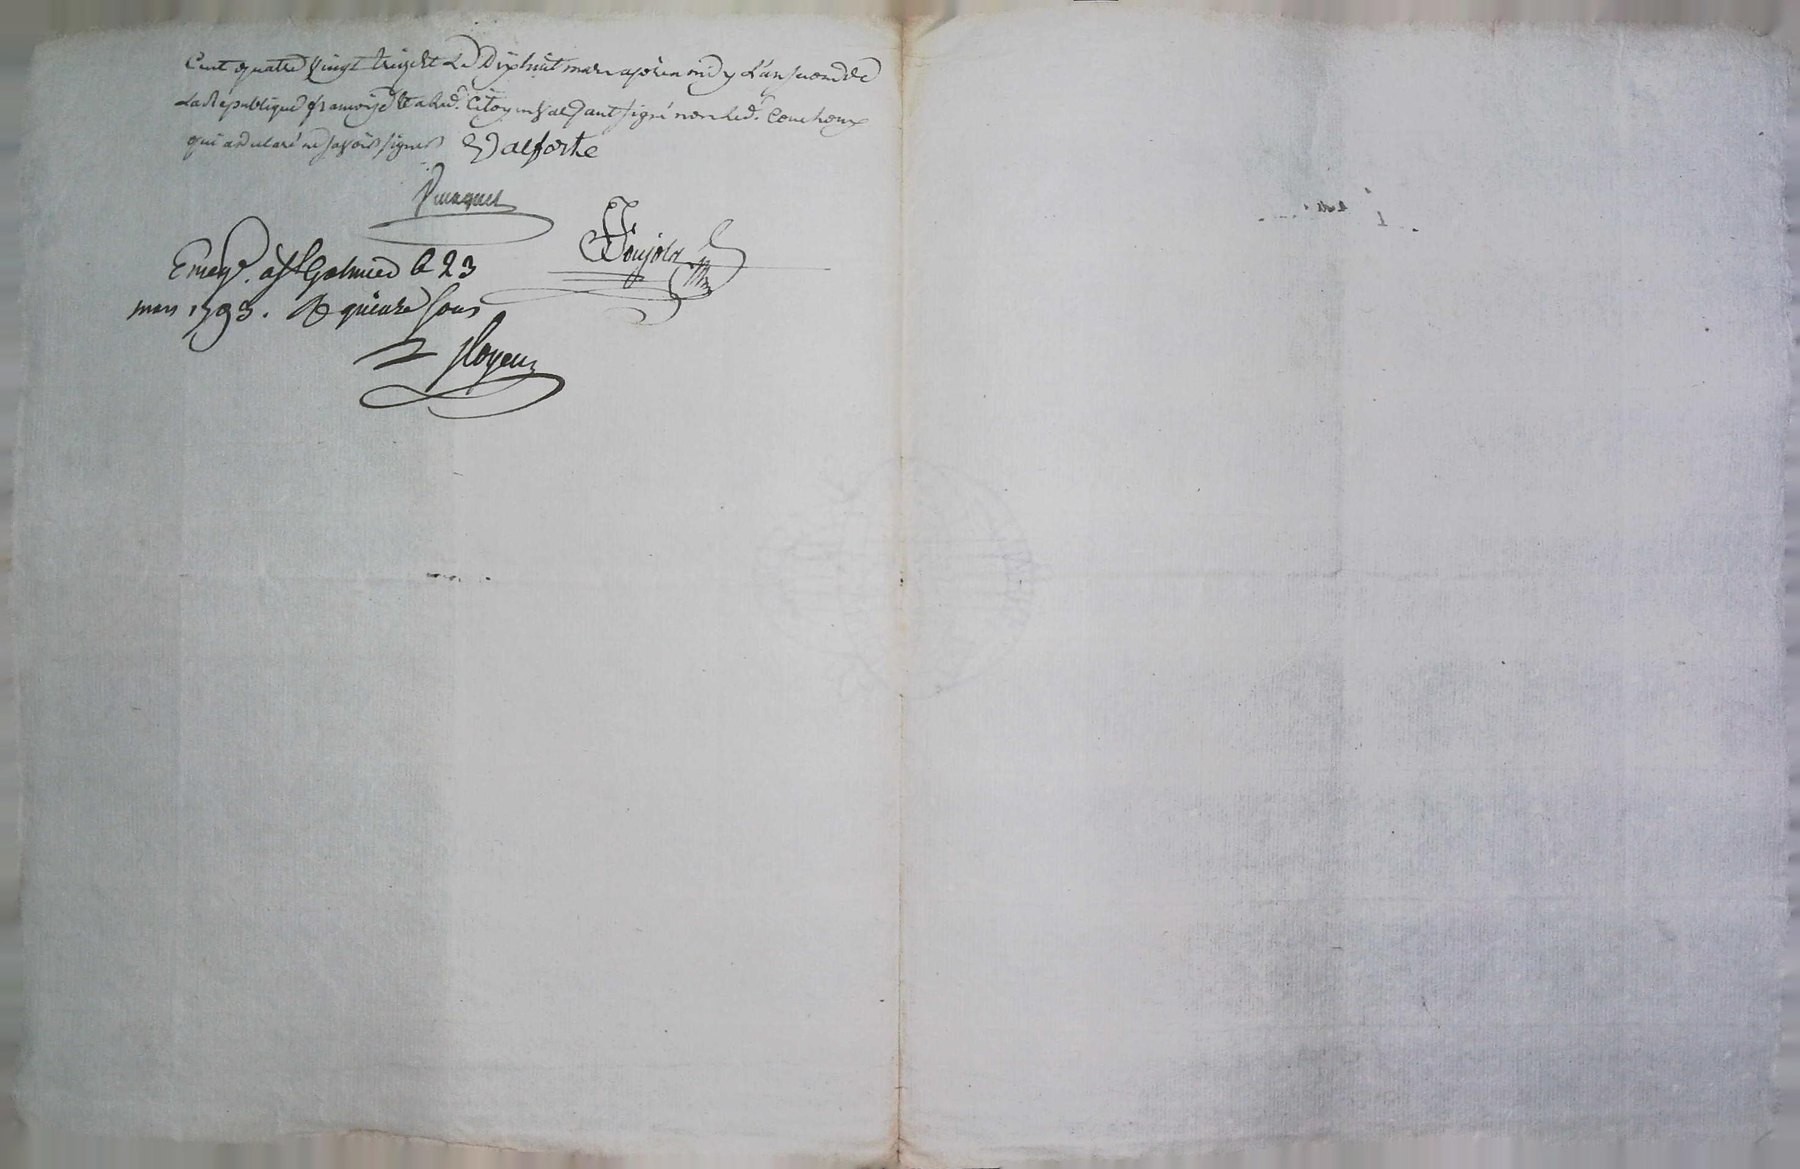 Cent quatre vingt treize et Le Dixhuit mars après midy L'an second de
La Republique francoise Et a led.t Citoyen Valfort signé non led.t Couchoux
qui a declaré ne savoir signer Valforte
Enreg.é à St Galmier le 23
mars 1793. R quinze sous